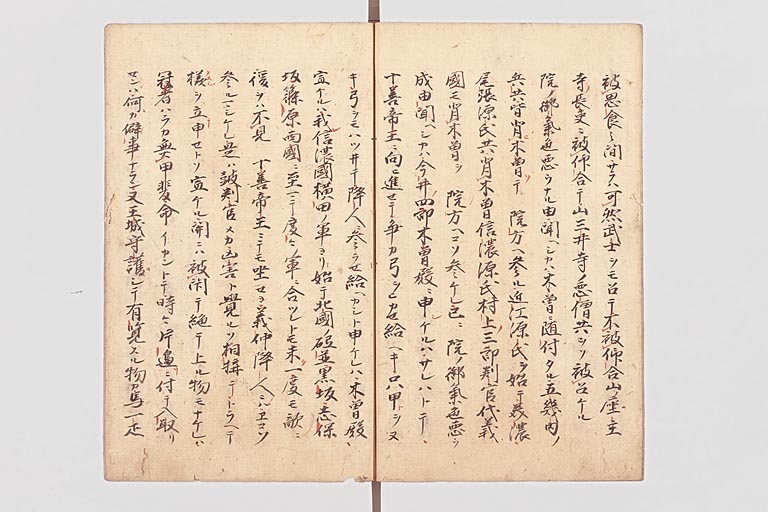 被思食ケル間サラハ可然武士ヲモ召テ不被仰合山ノ座主
寺長吏ニ被仰合テ山三井寺ノ悪僧共ヲソ被召ケル
院ノ御氣色悪シナル由聞ヘシカハ木曽ニ随付タル五幾内ノ
兵共皆肖木曽テ 院方ヘ参ル近江源氏ヲ始テ美濃
尾張源氏共肖木曽信濃源氏村上三郎判官代義
國モ肖木曽ヲ 院方ヘコソ参ケレ已ニ 院ノ御氣色悪シ
成由聞ヘシカハ今井四郎木曽殿ニ申ケルハサレハトテ
十善帝王ニ向ヒ進セテ争カ弓ヲヒカセ給ヘキ只甲ヲヌ
キ弓ヲモハツ井テ降人ニ参ラせ給ヘカシト申ケレハ木曽殿
宣ケルハ義信濃國横田ノ軍ヨリ始テ北國ノ砥並黒坂志保
坂篠原西國ニ至マテ度々ノ軍ニ合ツレトモ未一度モ敵ニ
後ヲハ不見 十善帝王ニテモ坐セヨ義仲降人ニハヱコソ
参ルマシケレ是ハ皷判官メカ凶害ト覺ルソ相構テトラヘテ
様ヲ立申セトソ宣ケル開ニハ被閇テ絶テ上ル物モナケレハ
冠者ハラカ無甲斐命イカントテ時々片邊ニ付テ入取
センハ何カ僻事ナラン又王城守護シテ有覧スル物カ馬一疋